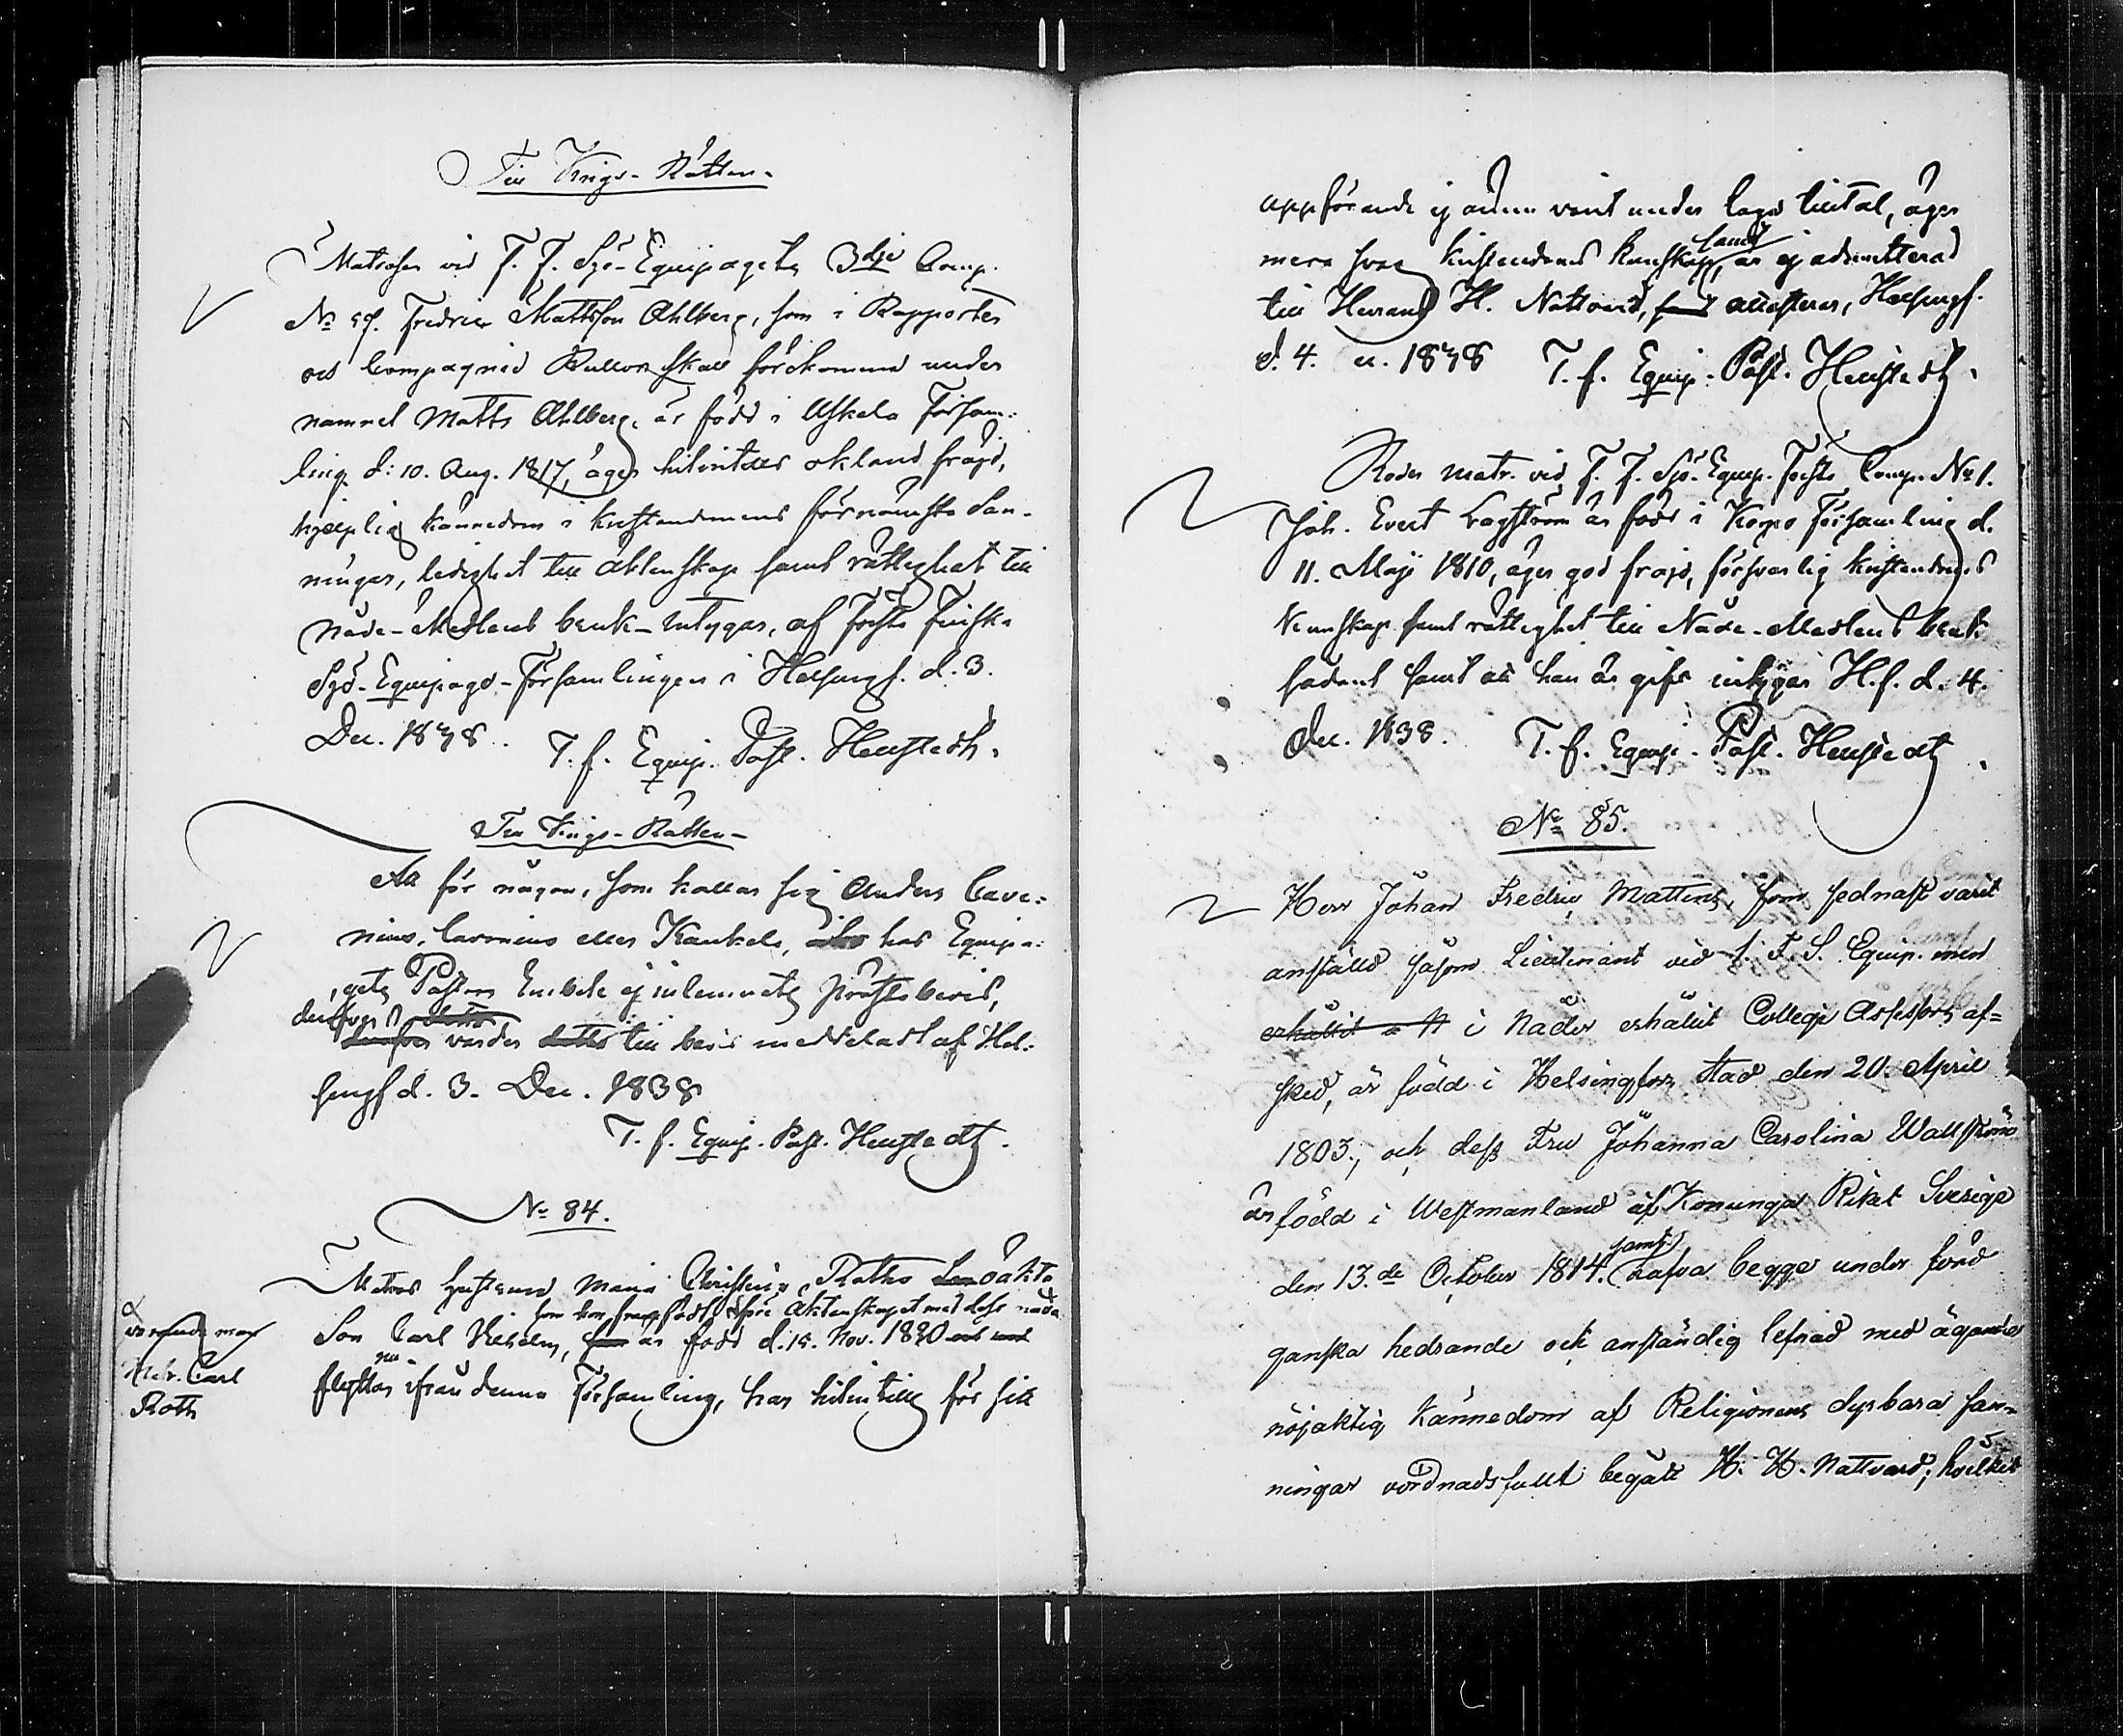 Till Krigs-Rätten.
Matrosen vid F. F. Sjö-Equipagets 3dje Comp.
No 59. Fredric Mattsson Ahlberg, som i Rapporten
och Compagnie Rullorne skall förekomma under
namnet Matts Ahlberg, är född i Askola Församling
d: 10. Aug. 1817, äger hitintills okland frejd,
hjelplig kännedom i Kristendomens förnämsta Sanningar,
ledighet till äktenskap samt rättighet till
Nåde-Medlens bruk intygar, af Första Finska
Sjö-Equipage-Församlingen i Helsingf. d. 3.
Dec. 1838. T. f. Equip. Past. Henstedt.
Till Krigs-Rätten
Att för någon, som kallar sig Anders Cave-
nius, Cavonius eller Kaukela, har Equipa-
gets Pastors Embete ej inlemnats prästbevis,
derföre
varder till bevis meddeladt af Hel-
singf d. 3. Dec. 1838
T. f. Equip. Past. Henstedt.
No 84.
Matros hustruns Maria Christina Roths oäkta
som hon framfödt före äktenskapet med dess nuva
Son Carl Vilhelm, är född d. 15. Nov. 1830
varande man
Matr. Carl
Roth
flyttar ifrån denna Församling, har hitintills för sitt
uppförande ej ännu varit under laga tilltal, äger
mera svag kristendoms kunskap, samt är ej admitterad
till Herrans H. Nattvard, attesteras, Helsingf.
d. 4. u. 1838 T. f. Equip. Past. Henstedt.
Roder matr. vid F. F. Sjö-Equip. Första Comp. No 1.
Joh. Evert Lagström är född i Församling d.
11. Maji 1810, äger god frejd, försvarlig kristendoms
Kunskap samt rättighet till Nåde-Medlens bruk
sådant samt att han är gift intygar H.f. d. 4.
Dec. 1838. T. f. Equip. Past. Henstedt.
No 85.
Herr Johan Fredric Mattens, som sednast varit
anställd såsom Lieutenant vid 1. F. S. Equip. men
erhållit i Nåder erhållit Collegii Assessors af-
sked, är född i Helsingfors stad den 20. April
1803; och dess Fru Johanna Carolina Wallström
är född i Westmanland af Konunga Riket Sverige
den 13.de October 1814. samt hafva begge under förd
ganska hedrande och anständig lefnad med ägande
nöjaktig kännedom af Religionens dyrbara san-
ningar vördnadsfullt begått H. H. Nattvard; hvilket